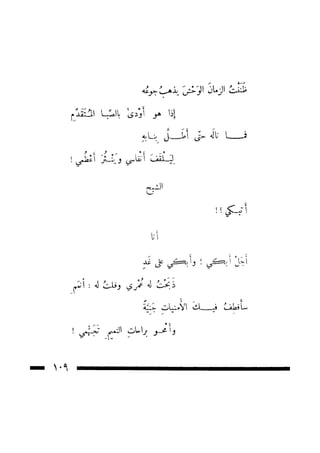 ظَنَنْتُ الزمانَ الوَحْشَ يذهبُ جوعُه
إذا هو أَوْدىٰ بالصِّبا المُتَقَدِّمِ
فما نالَه حتّى أَطَلَّ بنابِهِ
أنفاسي وَيَنْثُرَ أعْظُمي !
الشبح
أتبكي ؟!
أنا
أجَلْ أبكي ؛ وأبكي على غَدٍ
ذَبَحْتُ له عُمْري وقلتُ له : أنعَمِ
سأقطِفُ فيكَ الأمنياتِ جَنِيَّةً
وأمحو براحاتِ النعيمِ تَجَهُّمي !
١٠٩